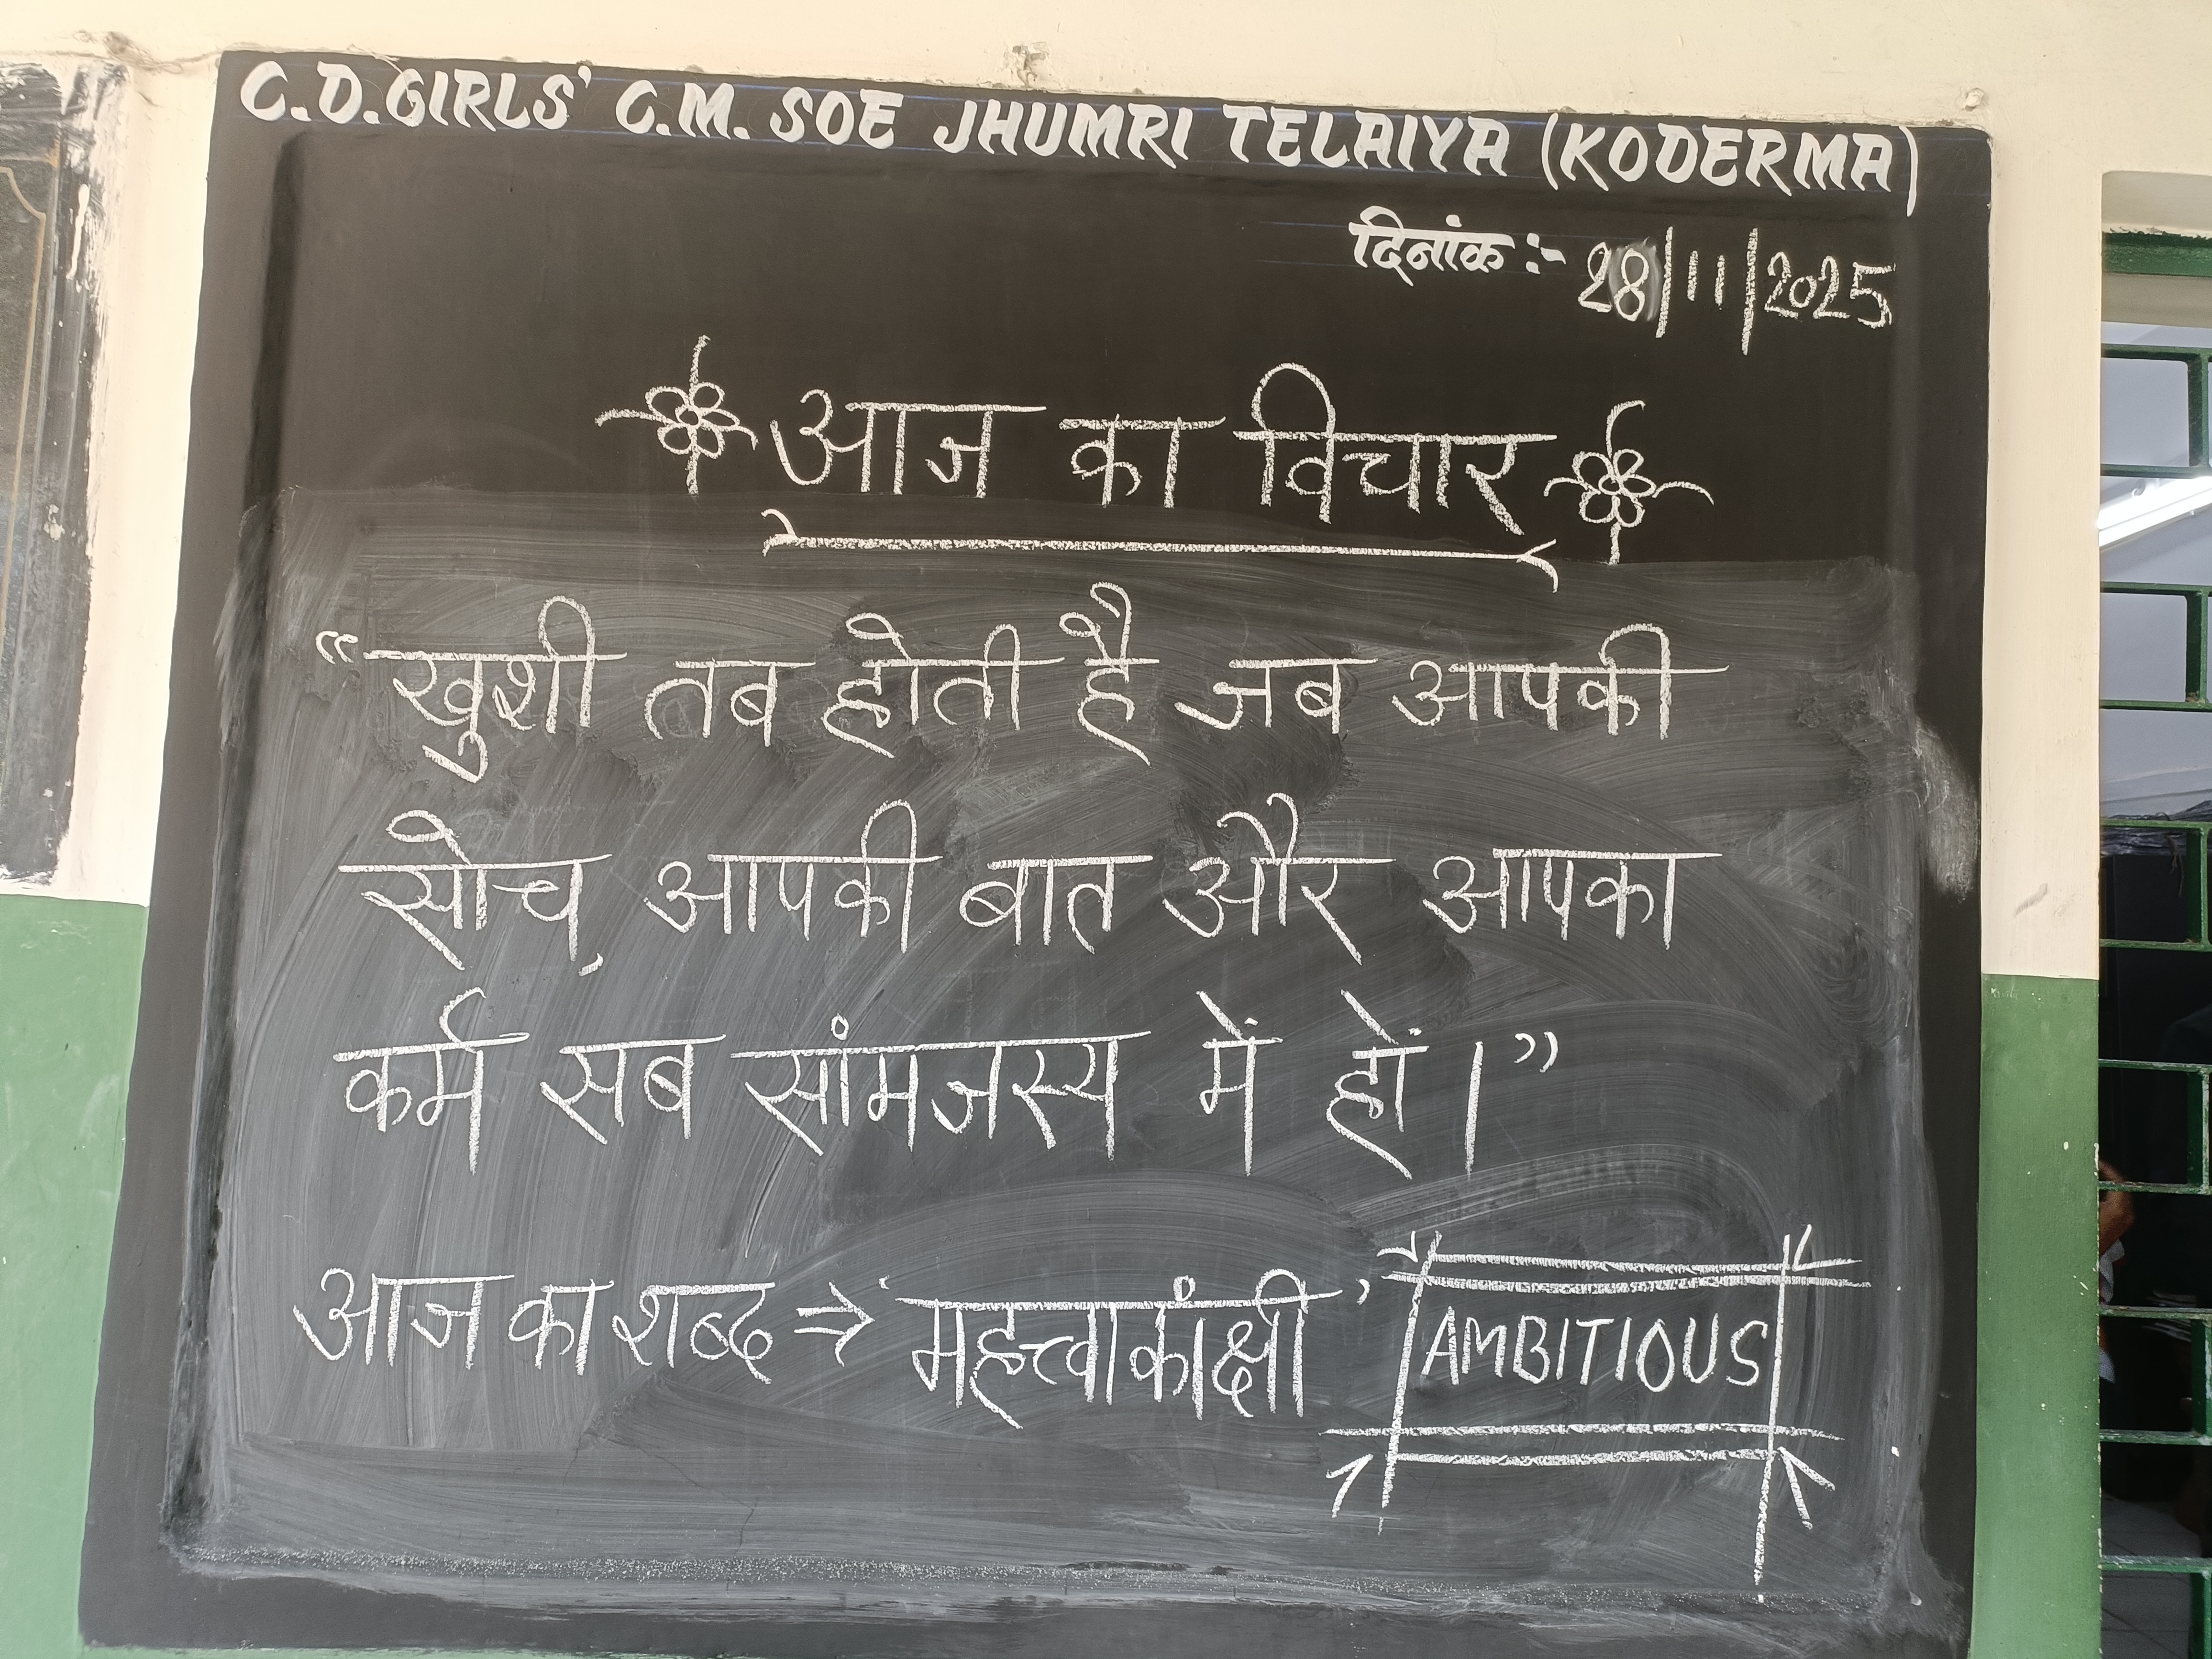 C.D.GIRLS' C.M. SOE JHUMRI TELAIYA (KODERMA)
दिनांक :- 28/11/2025
आज का विचार
“खुशी तब होती है जब आपकी
सोच, आपकी बात और आपका
कर्म सब सांमजस्य में हों।”
आज का शब्द → ‘महत्त्वाकांक्षी’ AMBITIOUS